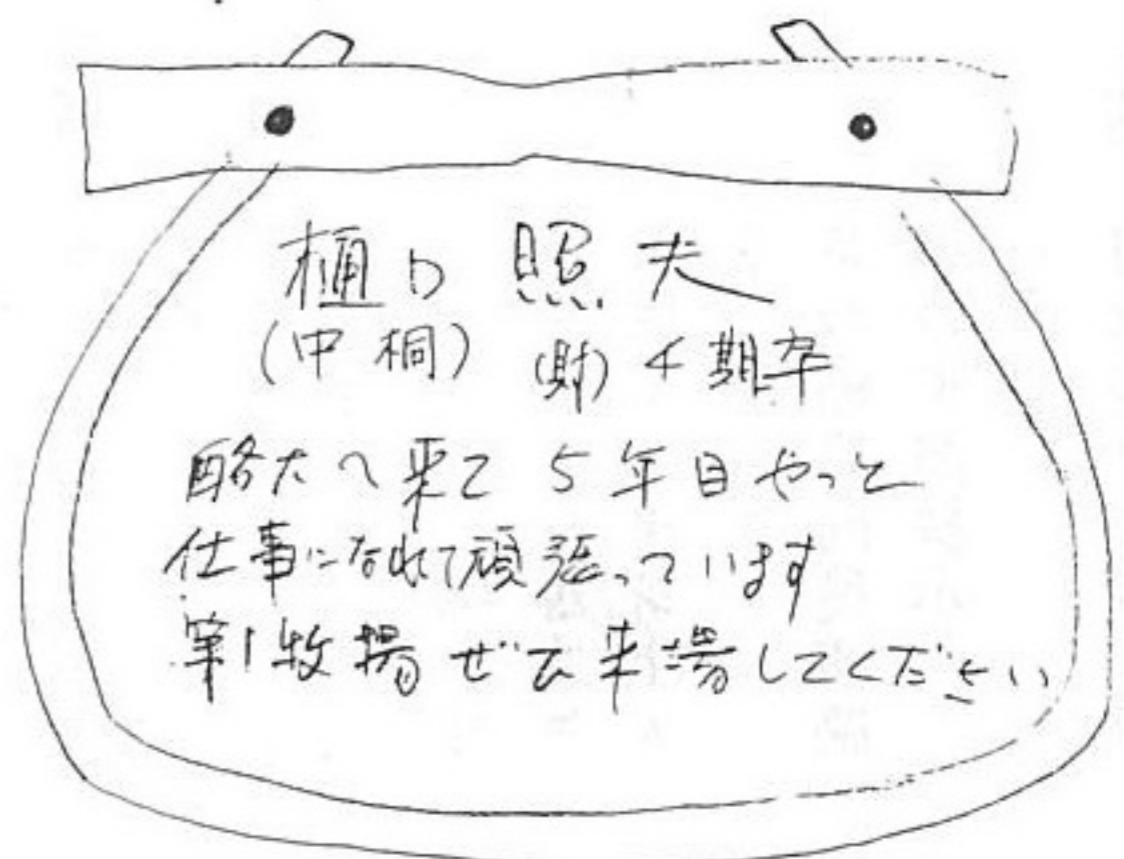 樋口 照夫
(中桐) (財) 4期卒
酪大へ来て 5年目やっと
仕事になれて頑張っています
第1牧場 ぜひ来場してください